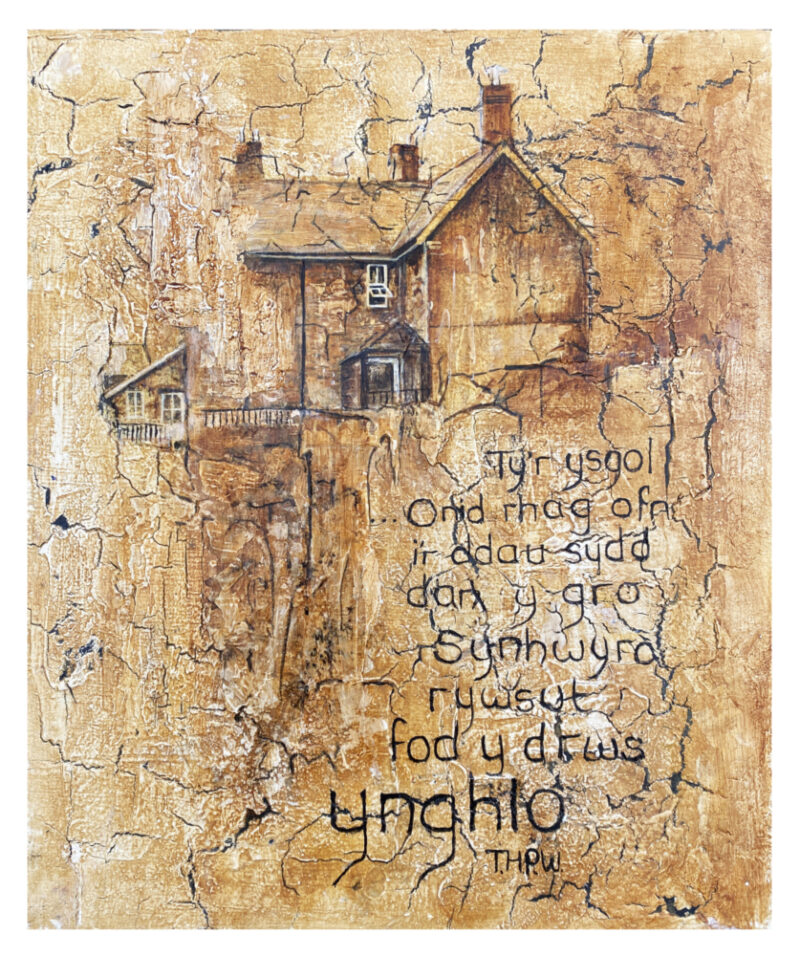 Ty'r ysgol
...Ond rhag ofn
i'r ddau sydd
dan y gro
Synhwyro
rywsut
fod y drws
ynghlo
T.H.P.W.